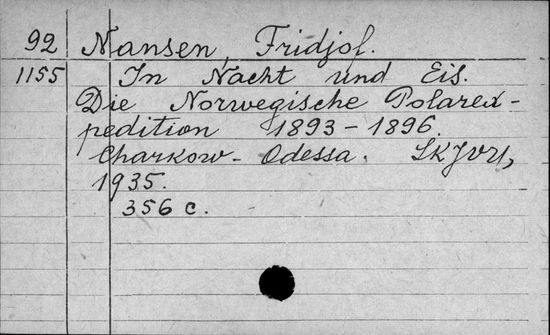 92 Nansen, Fridjof.
1155 In Nacht und Eis.
Die Norwegische Polarex-
pedition 1893-1896.
Charkow-Odessa.
1935.
356 c.